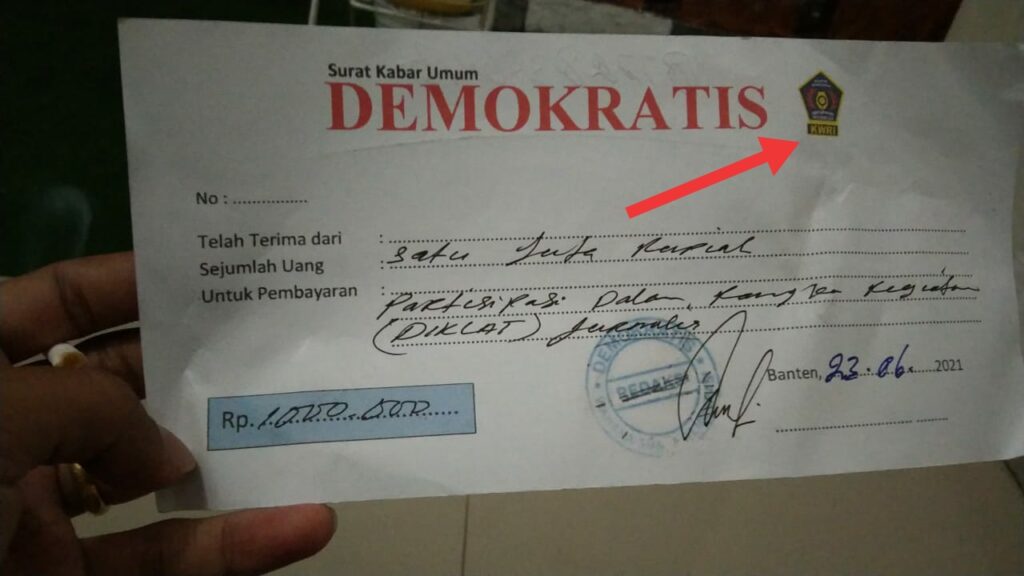 Surat Kabar Umum
DEMOKRATIS
KWRI
No : ................
Telah Terima dari :
Sejumlah Uang : Satu Juta Rupiah
Untuk Pembayaran : Partisipasi Dalam Rangka Kegiatan
(DIKLAT) Jurnalis
REDAKSI
Banten, 23.06. 2021
Rp. 1.000.000